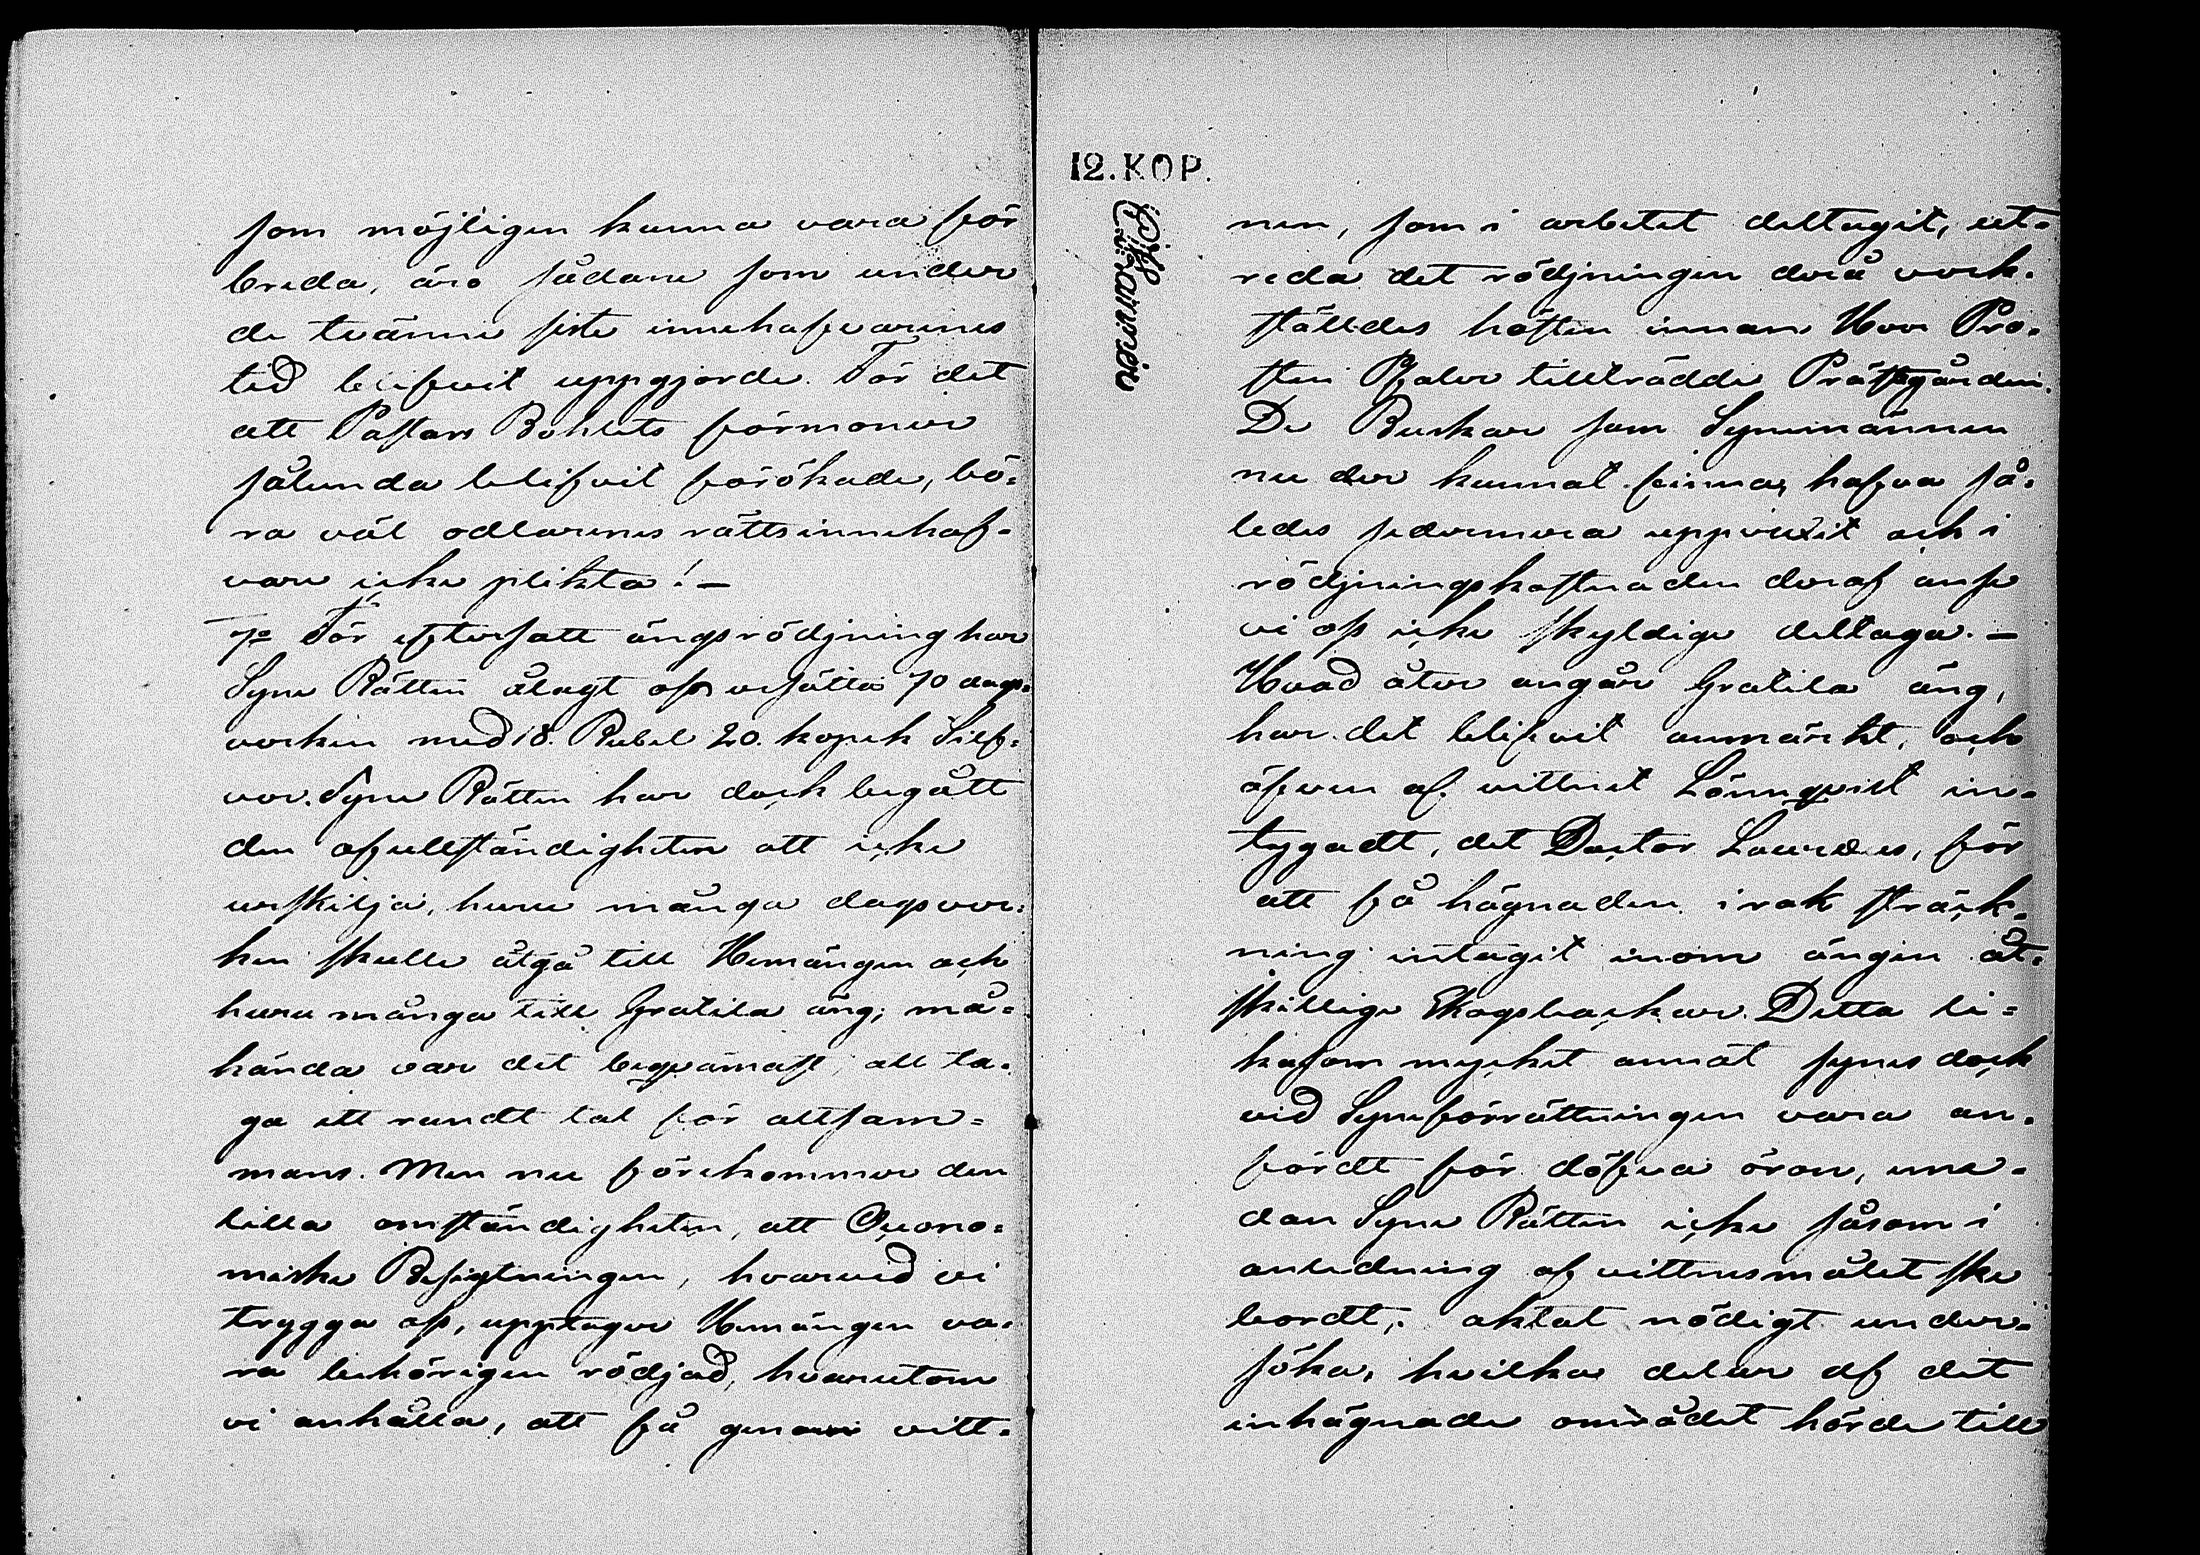 som möjligen kunna vara för
breda, äro sådane som under
de tvänne siste innehafvarenes
tid blifvit uppgjorde. För det
att Pastors Bohlets förmoner
sålunda blifvit förökade, bö-
ra väl odlarenes rättsinnehaf-
vare icke plikta! —
7o För eftersatt ängsrödjning har
Syne Rätten ålagt oss ersätta 70 dags-
verken med 18. Rubel 20. kopek Silf-
ver. Syne Rätten har dock begått
den ofullständigheten att icke
urskilja, huru många dagsver-
ken skulle åtgå till Hemängen och
huru många till Gratila äng; må-
hända var det beqvämast, att ta-
ga ett rundt tal för altsam-
mans. Men nu förekommer den
lilla omständigheten, att Oecono-
miske Besigtningen, hvarvid vi
trygga oss, upptager Hemängen va-
ra behörigen rödjad, hvarutom
vi anhålla, att få genom vitt-
12. KOP.
nen, som i arbetet deltagit, ut-
reda det rödjningen derå verk-
ställdes hösten innan Herr Pro-
sten Pfaler tillträdde Prästgården.
De Buskar som Synemännen
nu der kunnat finna, hafva så-
ledes sedermera uppväxit och i
rödjningskostnaden deraf anse
vi oss icke skyldige deltaga. —
Hvad åter angår Gratila äng,
har det blifvit anmärkt, och
äfven af vittnet Lönnqvist in-
tygadt, det Doctor Lauræus, för
att få hägnaden i rak sträck-
ning intagit inom ängen åt-
skillige Skogsbackar. Detta li-
kasom mycket annat synes dock
vid Syneförrättningen vara an-
fördt för döfva öron, me-
dan Syne Rätten icke såsom i
anledning af vittnesmålet ske
bordt, aktat nödigt under-
söka, hvilka delar af det
inhägnade området hörde till